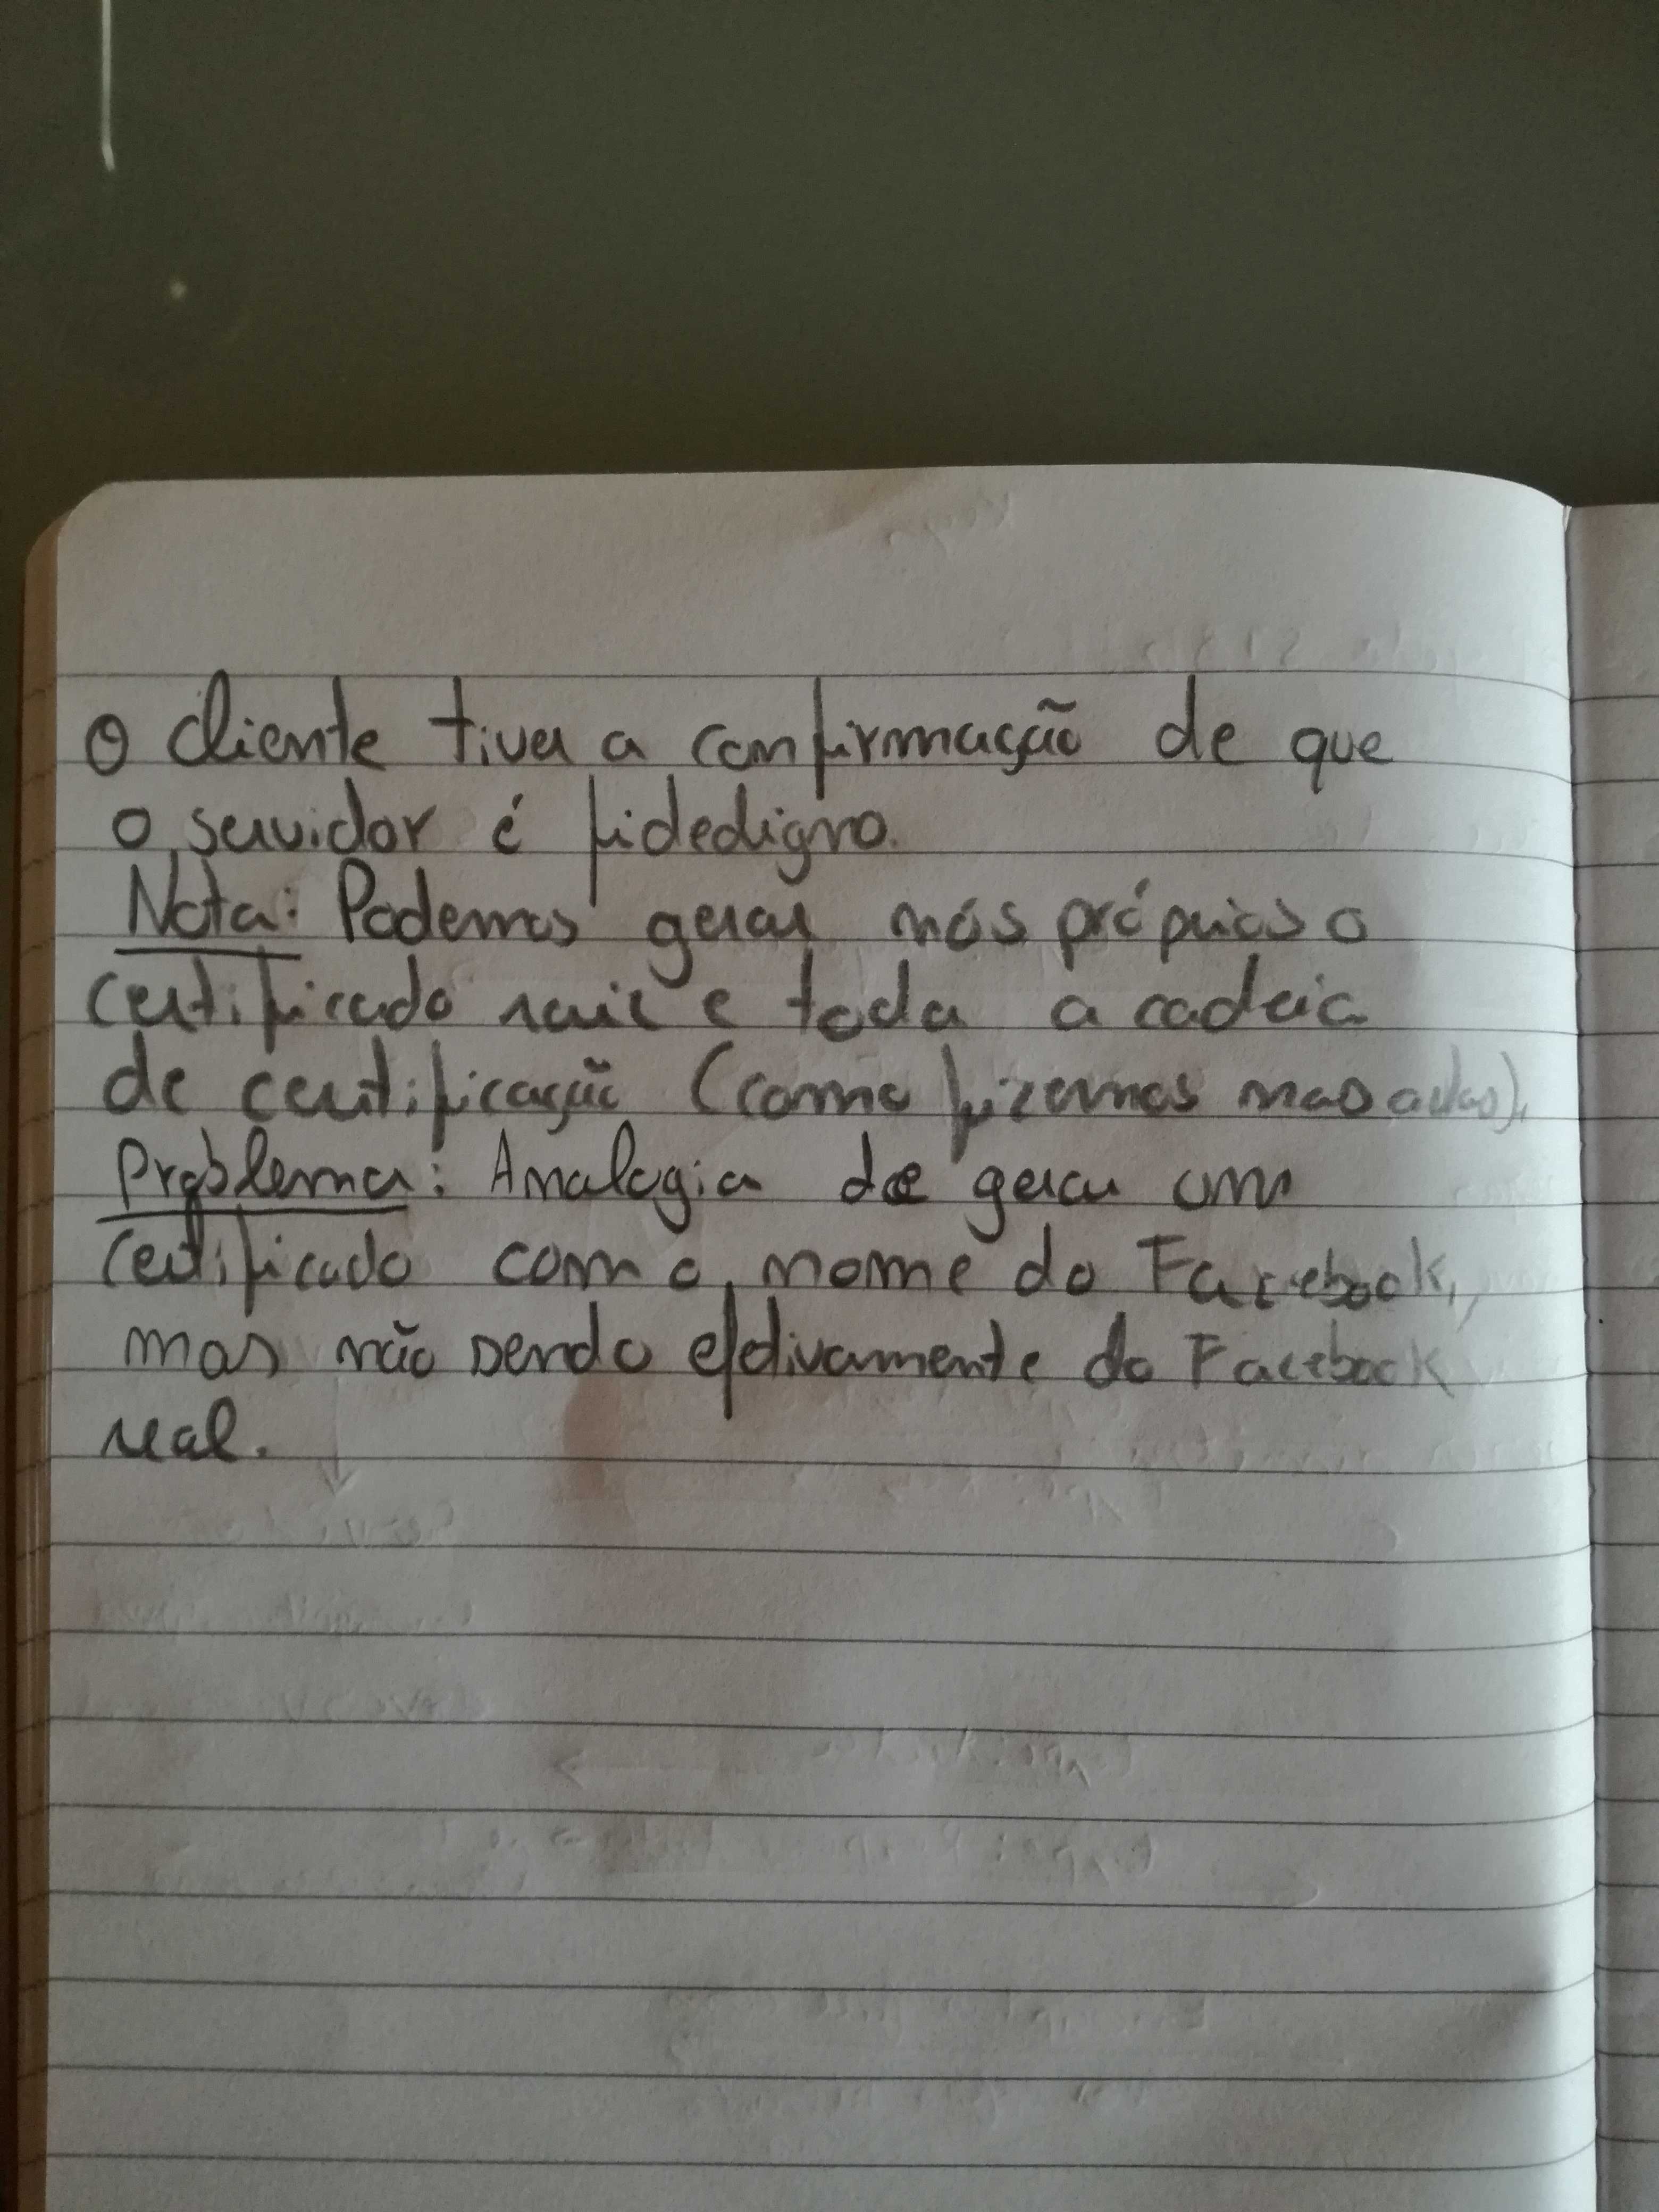 o cliente tiver a confirmação de que
o servidor é fidedigno.
Nota: Podemos gerar nós próprios o
certificado raiz e toda a cadeia
de certificação (como fizemos nas aulas).
Problema: Analogia de gerar um
certificado com o nome do Facebook,
mas não sendo efetivamente do Facebook
real.